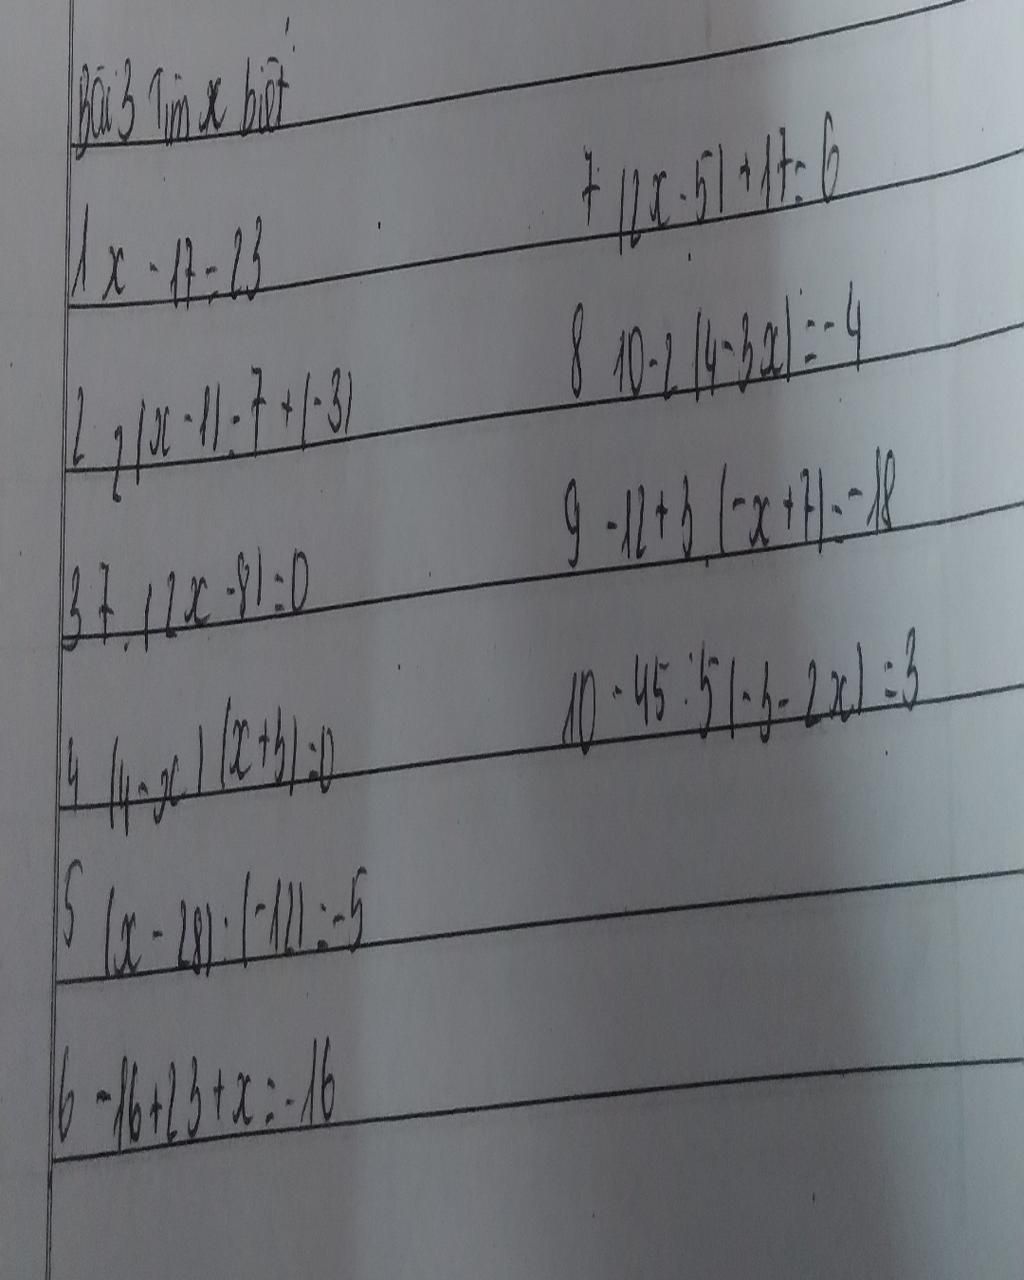 Bài 3 Tìm x biết
1 x - 17 = 23
2 2(x - 1) = 7 + (-3)
3 7. (2x - 8) = 0
4 (4 - x) (x + 3) = 0
5 (x - 28) : (-12) = -5
6 -16 + 23 + x = -16
7 (2x - 5) + 17 = 6
8 10 - 2 (4 - 3x) = -4
9 -12 + 3 (-x + 7) = -18
10 -45 : 5 (-3 - 2x) = 3